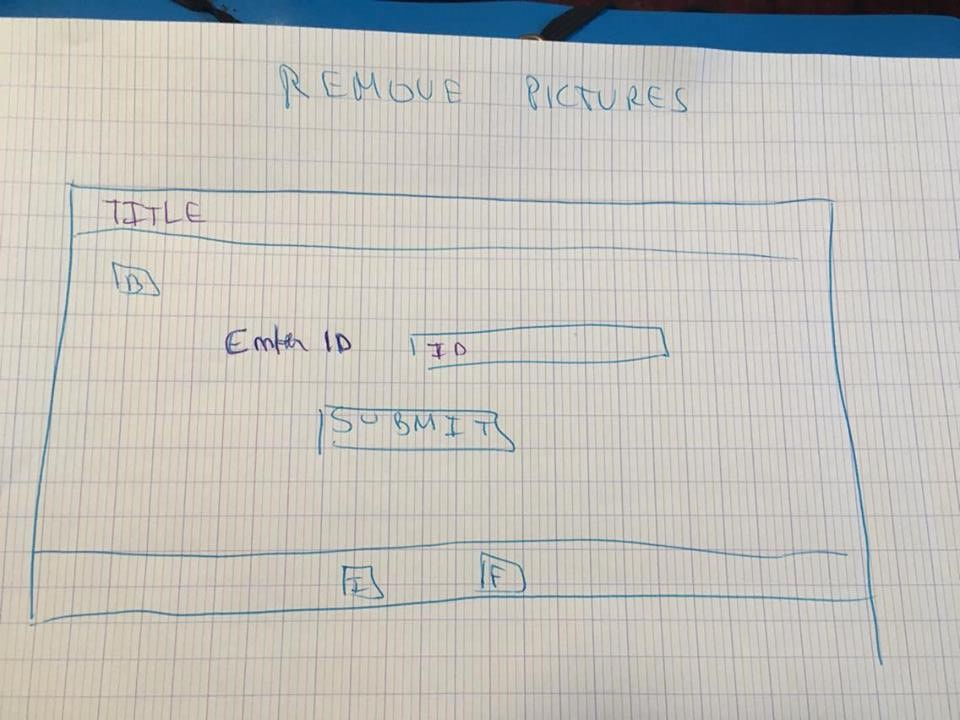 REMOVE PICTURES
TITLE
B
Enter ID ID
SUBMIT
I F